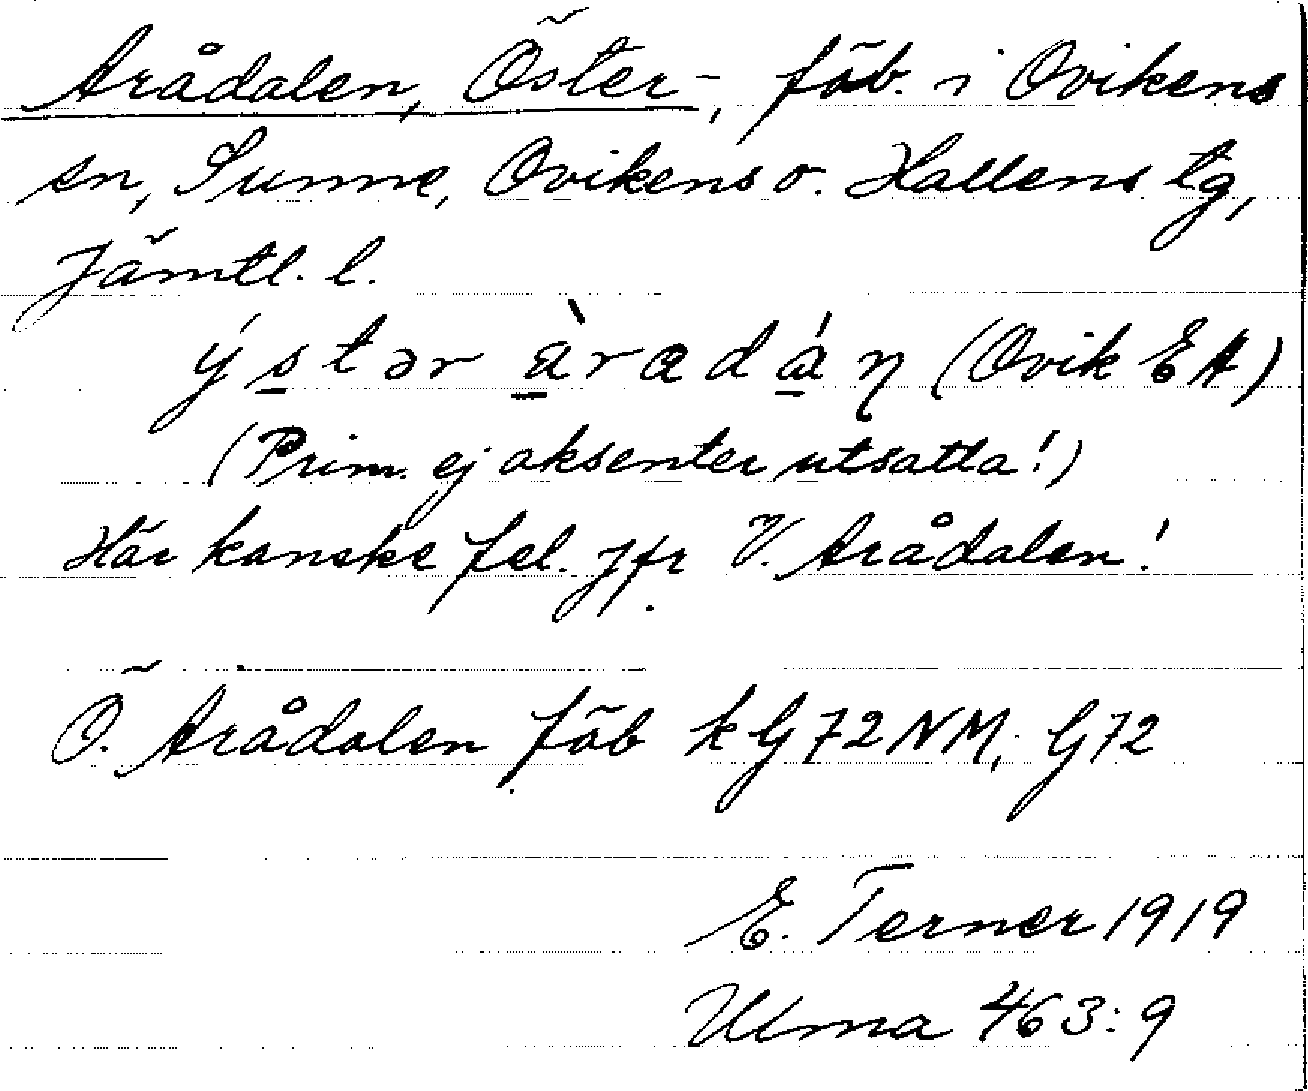 Arådalen, Öster-, fäb. i Ovikens
sn, Sunne, Ovikens o. Hallens tg,
Jämtl. l.
ýstər àradáŋ (Ovik EA)
(Prim. ej aksenter utsatta!)
Här kanske fel. Jfr V. Arådalen!
Ö. Arådalen fäb k G72NM, G72
E. Terner 1919
Ulma 463:9